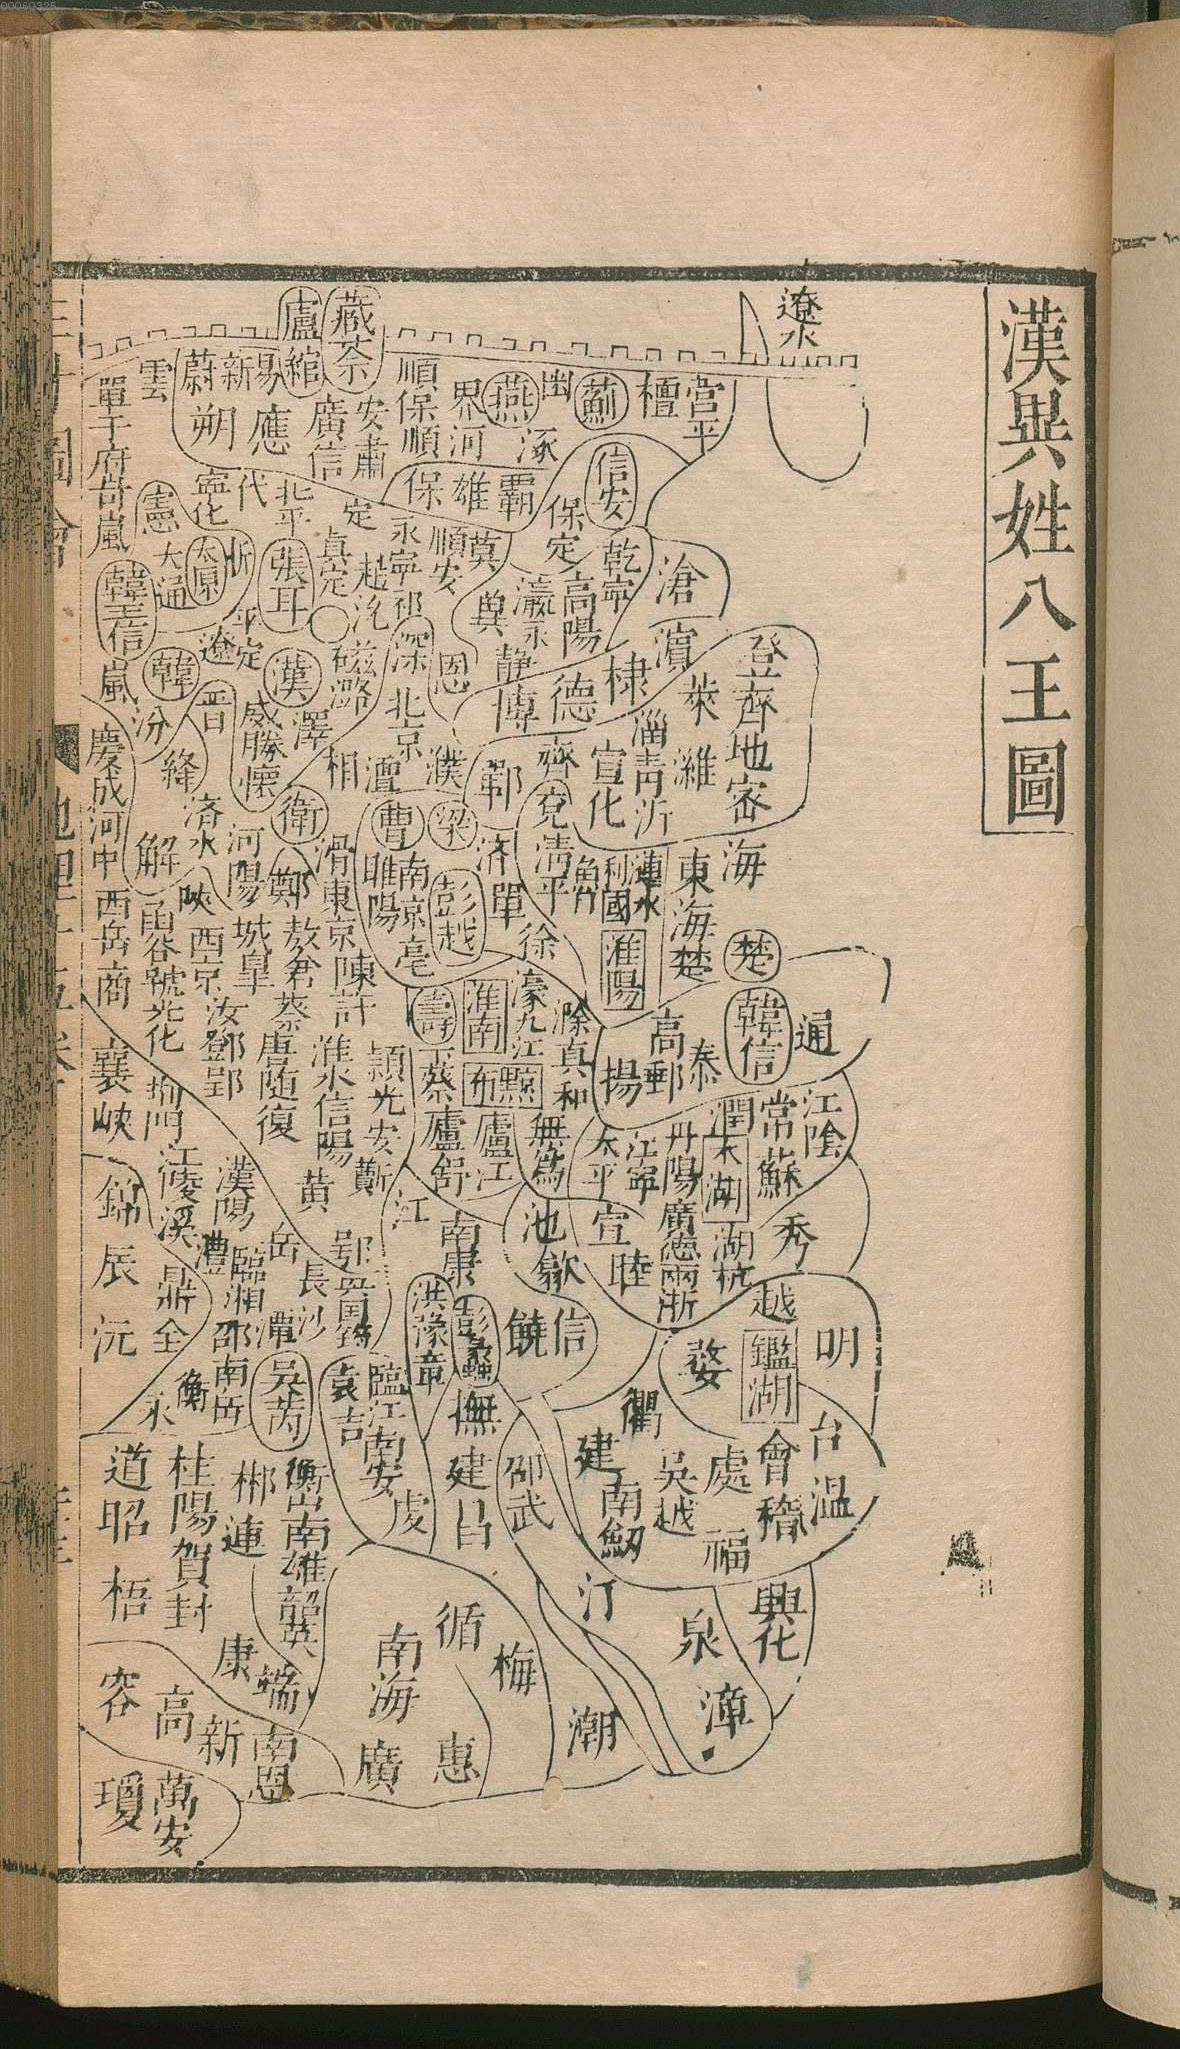 00060325
漢異姓八王圖
遼水
營平
檀
薊
幽
燕
涿
界河
順保順
臧荼
安肅
廣信
盧綰
易
應
新
蔚
朔
雲
單于府
岢嵐
憲
寧化
代
北平
定
保
雄
霸
信安
保定
乾寧
滄
高陽
瀛
莫
順安
永寧
祁
真定
趙
張耳
忻
太原
大通
韓王信
嵐
韓
遼
平定
漢
磁
潞
深
恩
冀
靜
博
德
棣
濱
萊
登
齊地
密
濰
淄
青
沂
宣化
齊
鄆
濮
北京
澶
相
澤
威勝
懷
晉
汾
絳
慶成
河中
解
濟水
河陽
衛
曹
梁
濟
單
兗
清平
利國
漣水
東海
海
楚
楚
韓信
通
泰
高郵
揚
淮陽
徐
彭越
南京
亳
睢陽
滑
東京
陳
許
鄭
敖倉
蔡
唐
隨
復
城皋
陝
西京
汝
鄧
郢
函谷
虢
光化
西岳
商
襄
峽
荊門
江陵
溪
漢陽
淮水
信陽
潁
光
安
蘄
黃
壽
淮南
濠
九江
滁
真
和
黥布
蔡
廬
舒
廬江
無為
太平
江寧
丹陽
廣德
兩浙
潤
太湖
常
蘇
江陰
湖
杭
秀
宣
睦
池
歙
江
南康
鄂
岳
長沙
潭
澧
臨湘
邵
鼎
全
錦
辰
沅
永
衡
南岳
吳芮
袁
吉
臨江
南安
虔
洪
豫章
饒
信
撫
建昌
邵武
婺
衢
越
鑑湖
明
台
溫
會稽
處
福
吳越
建
南劒
汀
泉
漳
興化
潮
梅
循
惠
南海
廣
衡山
南雄
韶
英
端
南恩
郴
連
桂陽
賀
封
康
新
道
昭
梧
容
高
瓊
萬安